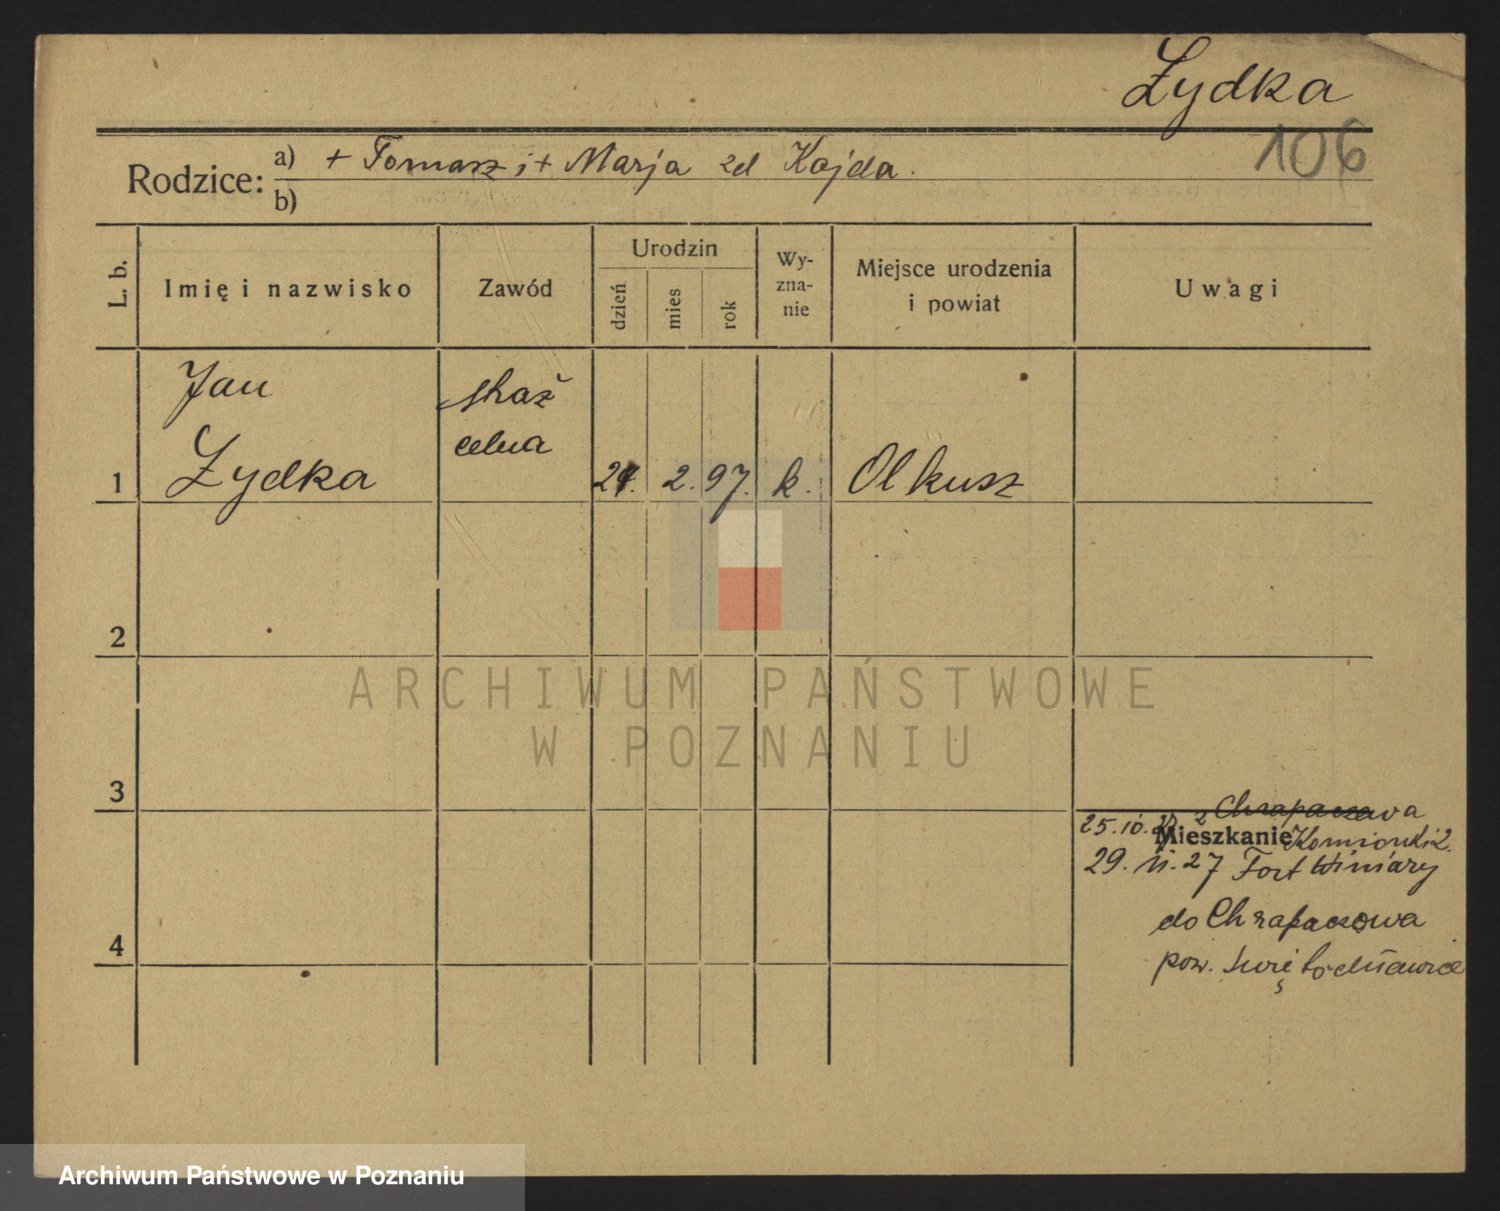 Żydka
106
Rodzice: a) + Tomasz i + Marja zd Kajda.
b)
L. b.
Imię i nazwisko
Zawód
Urodzin
dzień
mies
rok
Wy-
zna-
nie
Miejsce urodzenia
i powiat
Uwagi
Jan
Żydka
straż
celna
1
2. 97. k. Olkusz
2
3
4
z Chrapaczewa
25.10. Mieszkanie
29. 11. 27 Fort Winiary
do Chrapaczewa
pow.
ARCHIWUM PAŃSTWOWE
W POZNANIU
Archiwum Państwowe w Poznaniu